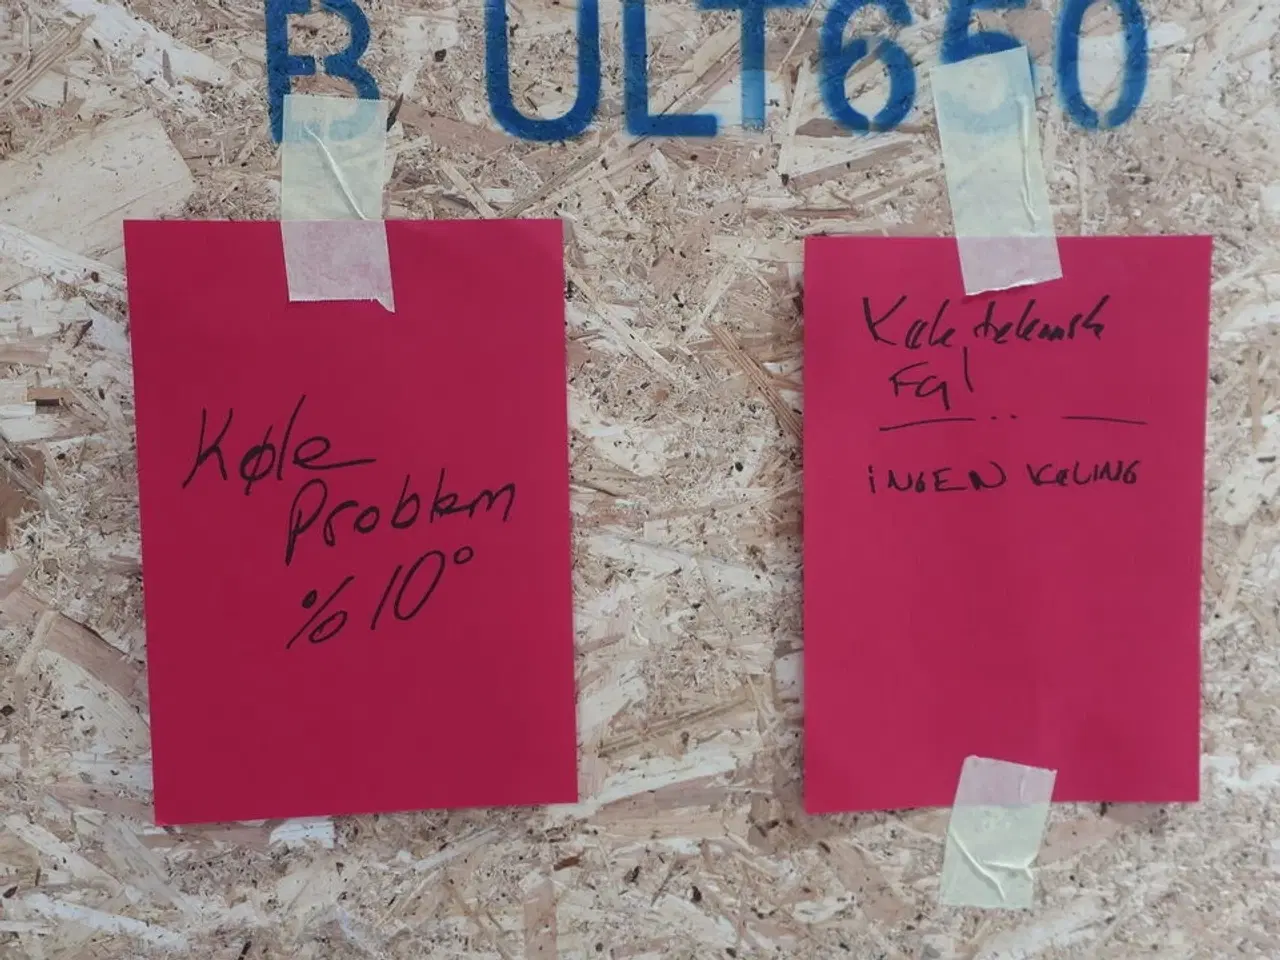 B ULT650
Køle
Problem
% 10°
Køle teknisk
Fejl
iNGEN KøLING